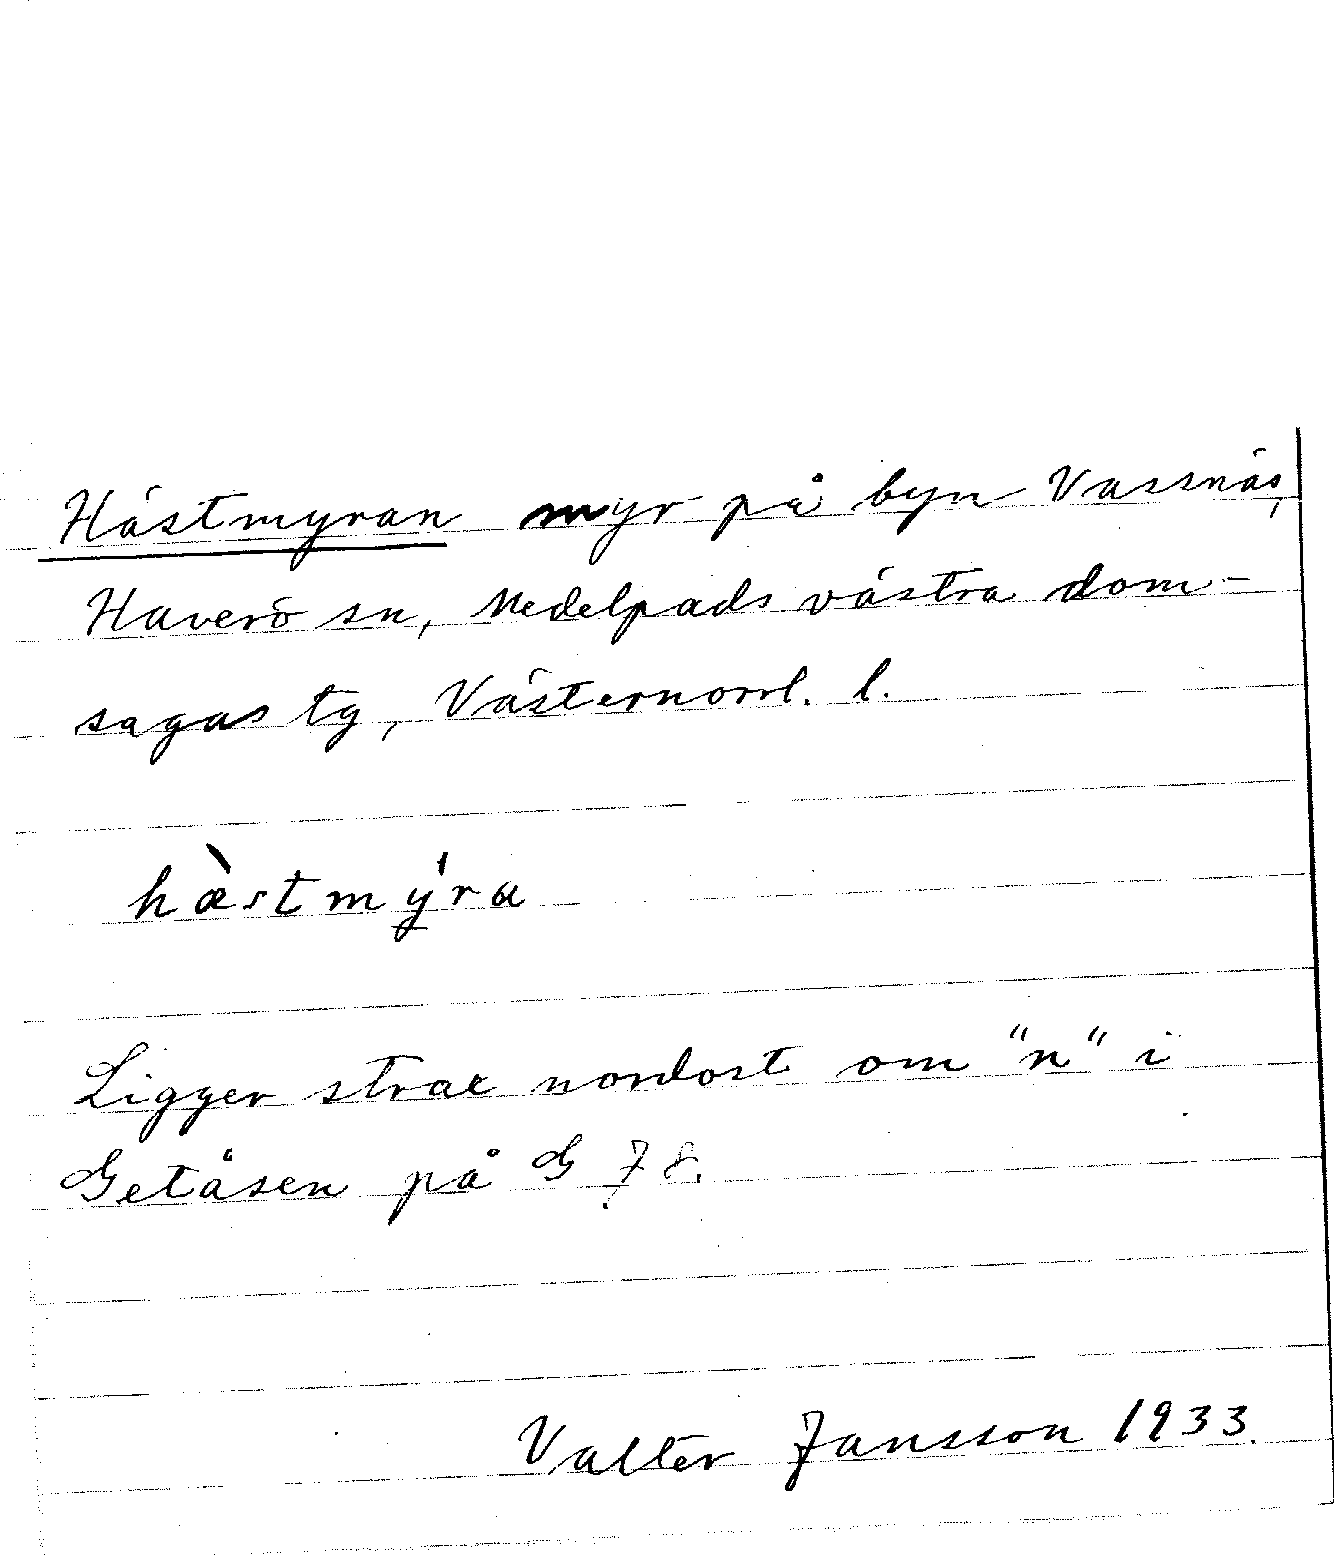 Hästmyran myr på byn Vassnäs,
Haverö sn, Medelpads västra dom-
sagas tg, Västernorrl. l.
hæ̀stmýra
Ligger strax nordost om "n" i
Getåsen på G 78.
Valter Jansson 1933.